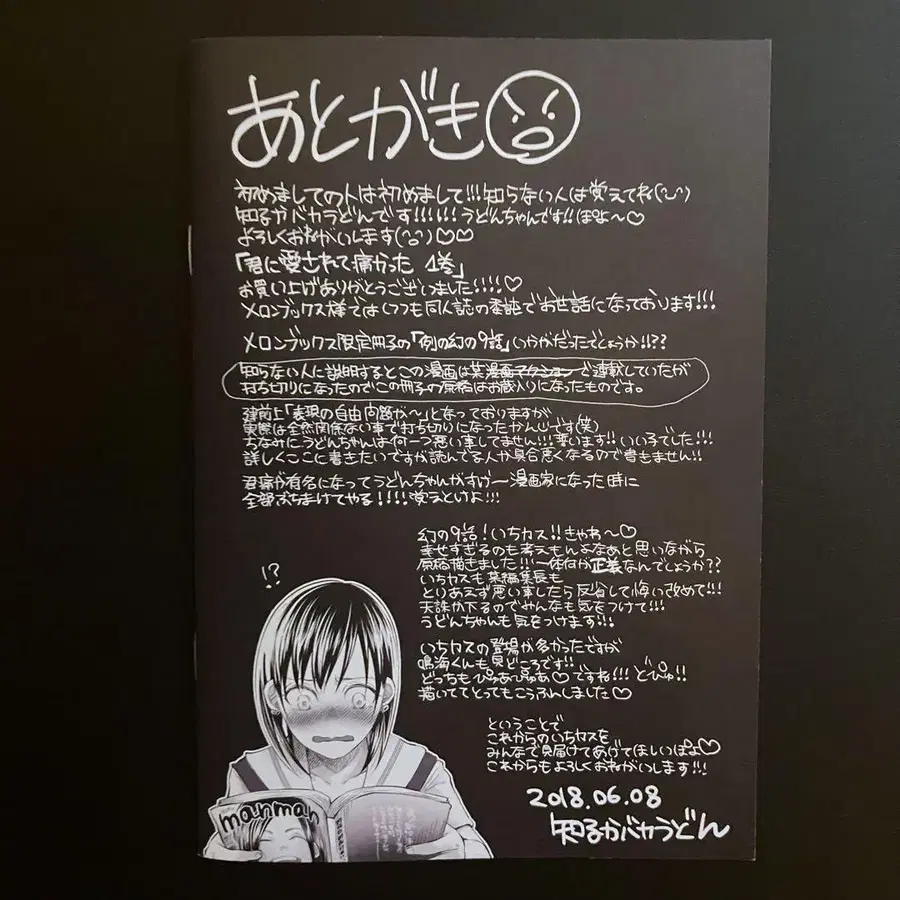 あとがき
初めましての人は初めまして!!!知らない人は覚えてね(^o^)
知るかバカうどんです!!!!!!うどんちゃんです!!ぽよ〜♡
よろしくおねがいします(^o^)♡♡
「君に愛されて痛かった 1巻」
お買い上げありがとうございました!!!!♡
メロンブックス様ではいつも同人誌の委託でお世話になっております!!!
メロンブックス限定冊子の「例の幻の9話」いかがだったでしょうか!!??
知らない人に説明するとこの漫画は某漫画アクションで連載していたが
打ち切りになったのでこの冊子の原稿はお蔵入りになったものです。
建前上「表現の自由問題が〜」となっておりますが
実際は全然関係ない事で打ち切りになったかんじです(笑)
ちなみにうどんちゃんは何一つ悪い事してません!!!誓います!!いい子でした!!!
詳しくここに書きたいですが読んでる人が具合悪くなるので書きません!!
君痛が有名になってうどんちゃんがすげー漫画家になった時に
全部ぶちまけてやる!!!!覚えとけよ!!!
幻の9話!いちカス!!きゃわ〜♡
幸せすぎるのも考えもんよなあと思いながら
原稿描きました!!!一体何が正義なんでしょうか??
いちカスも某編集長も
とりあえず悪い事したら反省して悔い改めて!!!
天誅が下るのでみんなも気をつけて!!!
うどんちゃんも気をつけます!!!
いちカスの登場が多かったですが
鳴海くんも見どころです!!
どっちもぴゅあぴゅあ♡ですね!!!どぴゅ!!
描いててとってもこうふんしました♡
ということで
これからのいちカスを
みんなで見届けてあげてほしいぽよ♡
これからもよろしくおねがいします!!!
2018.06.08
知るかバカうどん
!?
manman